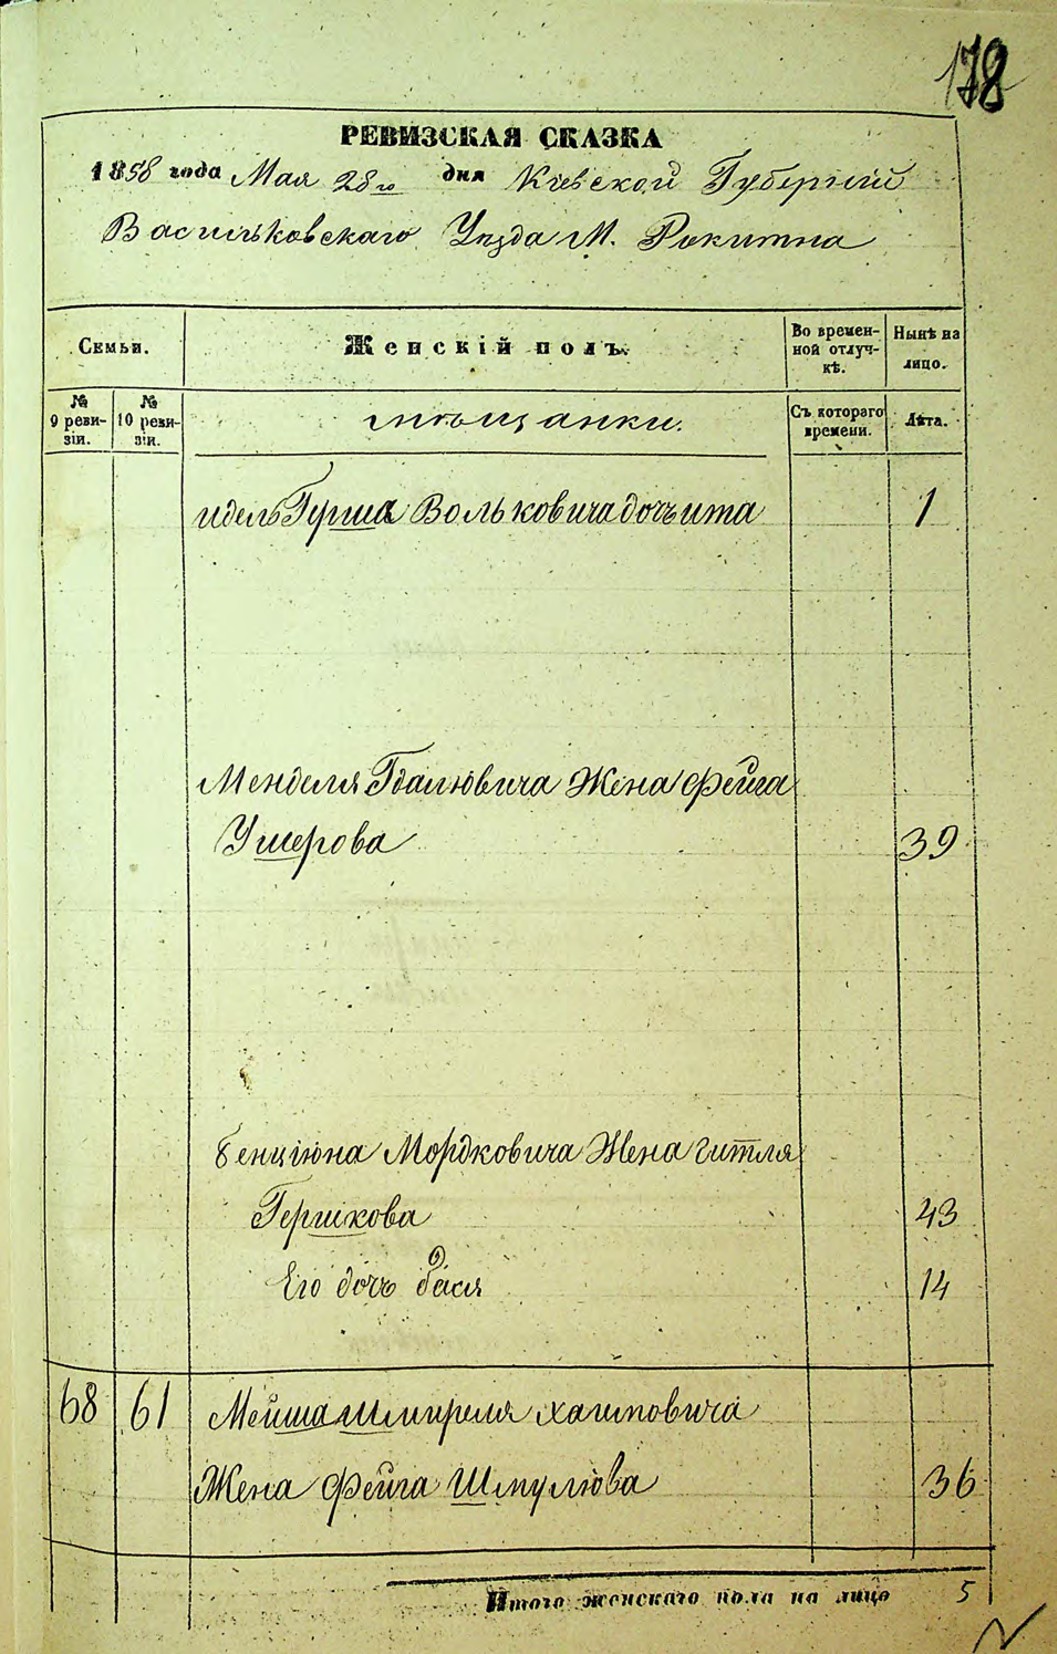 178
РЕВИЗСКАЯ СКАЗКА
1858 года Мая 28го дня Кіевской Губерніи
Васильковскаго Уѣзда М. Рокитна
Семьи.
Женскій полъ.
Во времен-
ной отлуч-
кѣ.
Нынѣ на
лицо.
№
9 реви-
зіи.
№
10 реви-
зіи.
мѣщанки.
Съ котораго
времени.
Лѣта.
идель Герша Вольковича дочь ита 1
Менделя Гдалювича Жена фейга
Ушерова 39
бенціюна Мордковича Жена гитля
Гершкова 43
Его дочь бася 14
68 61 Мейша Шмиреля хаимовича
Жена фейга Шмулюва 36
Итого женскаго пола на лицо 5